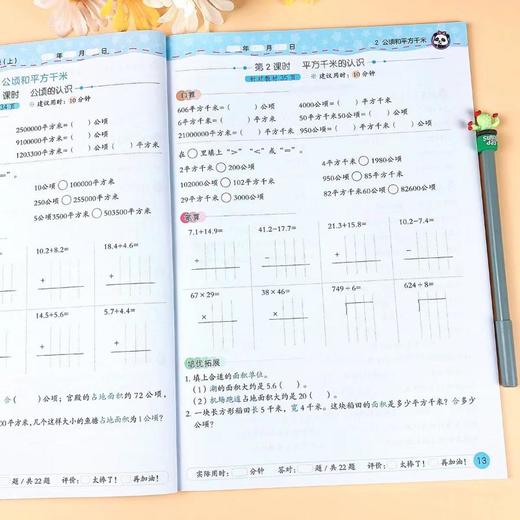 (上)
年 月 日
公顷和平方千米
课时 公顷的认识
34页
※ 建议用时：10分钟
2500000平方米=( )公顷
9100000平方米=( )公顷
1203300平方米=( )公顷( )平方米
=”。
10公顷○100000平方米
250公顷○255000平方米
5公顷3500平方米○503500平方米
10.2+8.2= 18.4+4.6=
14.5+5.6= 5.7+4.4=
合( )公顷；宫殿的占地面积约72公顷，
00平方米，几个这样大小的鱼塘占地面积为1公顷？
题/共22题 评价： 太棒了！ 再加油！
年 月 日
2 公顷和平方千米
第2课时 平方千米的认识
针对教材35页 ※ 建议用时：10分钟
口算
606平方千米=( )公顷 4000公顷=( )平方千米
6平方千米=( )公顷 50平方千米50公顷=( )公顷
21000000平方米=( )平方千米 950公顷=( )平方米
在○里填上“>”“<”或“=”。
2平方千米○200公顷 4平方千米○1980公顷
102000公顷○102平方千米 950公顷○85平方千米
29平方千米○3000公顷 82平方千米60公顷○82600公顷
竖算
7.1+14.9= 41.2-17.7= 21.3+15.8= 10.2-7.4=
67×29= 38×46= 749÷6= 624÷8=
培优拓展
1. 填上合适的面积单位。
(1) 湖的面积大约是5.6( )。
(2) 机场跑道占地面积大约是20( )。
2. 一块长方形稻田长5千米，宽4千米。这块稻田的面积是多少平方千米？合多少
公顷？
实际用时： 分钟 答对： 题/共22题 评价： 太棒了！ 再加油！
13